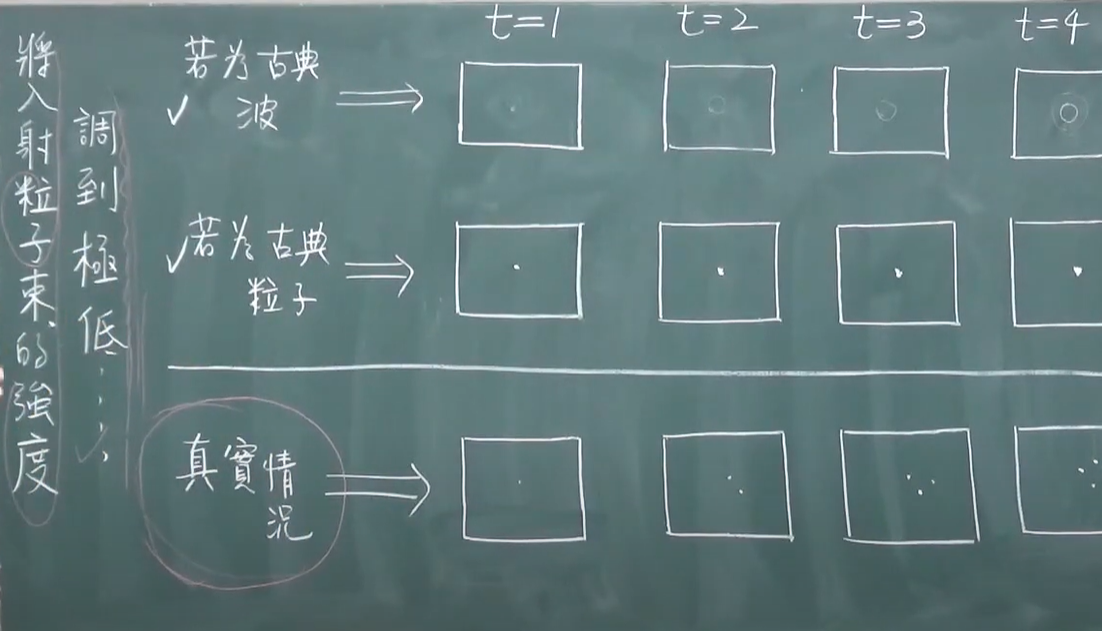 將入射粒子束的強度
調到極低……
t=1 t=2 t=3 t=4
若為古典
波
若為古典
粒子
真實情
況